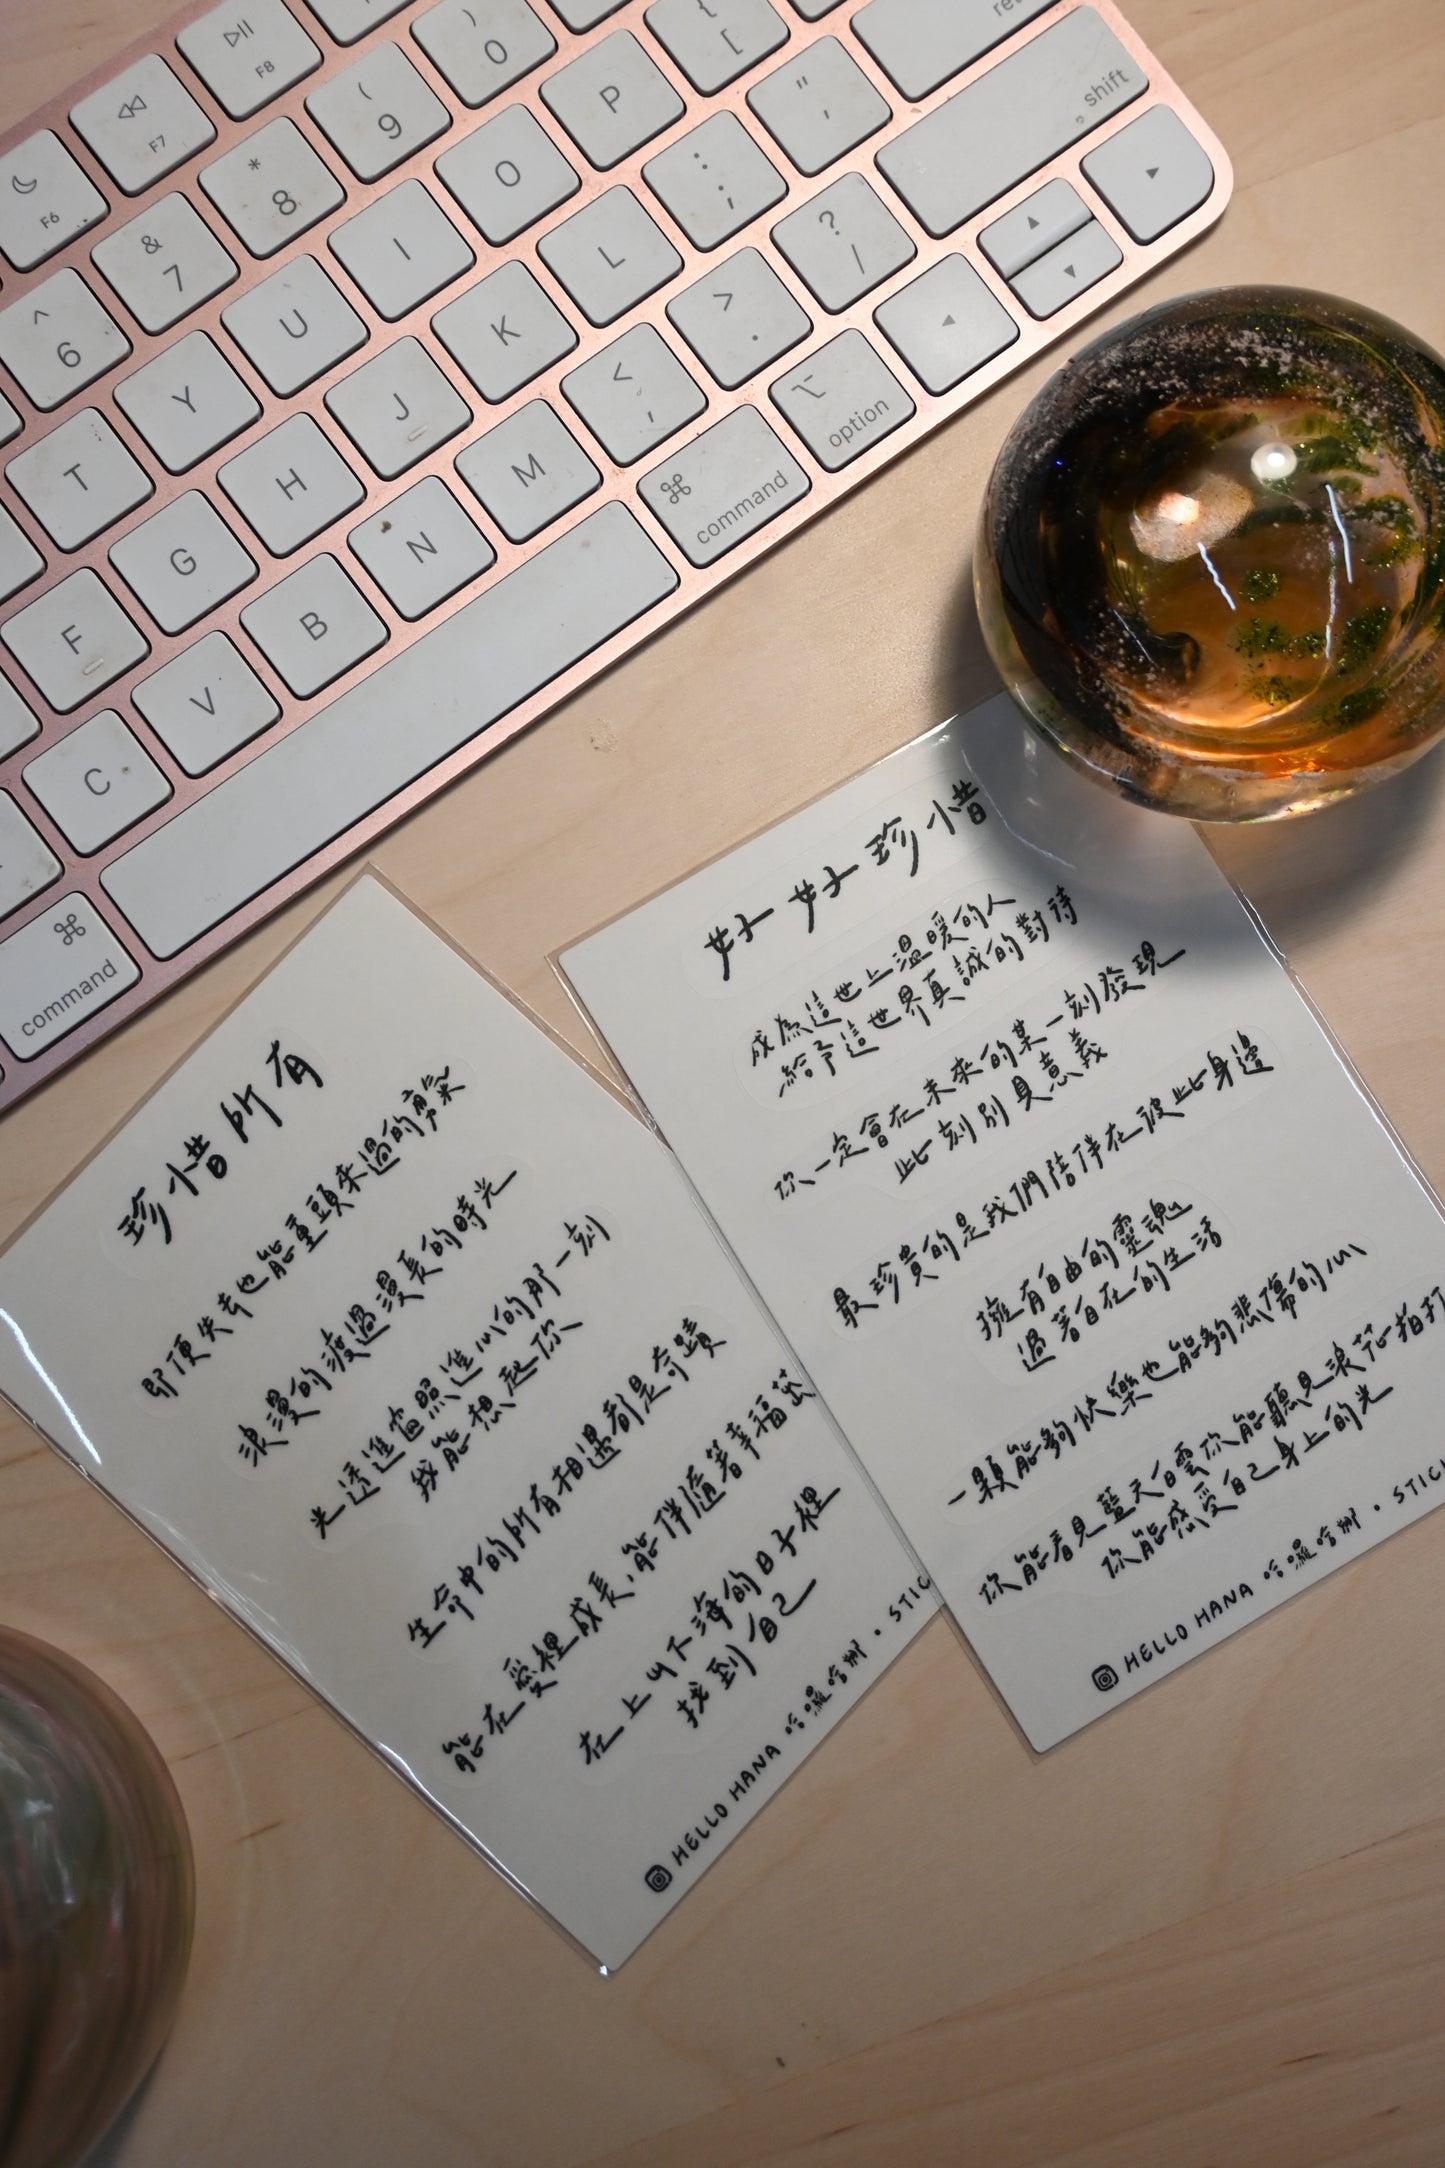 F6
F7
F8
^ 6
& 7
* 8
( 9
) 0
{ [
return
T
Y
U
I
O
P
F
G
H
J
K
L
: ;
" '
shift
C
V
B
N
M
< ,
> .
? /
command
command
option
珍惜所有
即便失去也能重頭來過的勇氣
浪漫的渡過漫長的時光
光透進窗照進心的那一刻
我能想起你
生命中的所有相遇都是奇蹟
能在愛裡成長,能伴隨著幸福茁
在上山下海的日子裡
找到自己
HELLO HANA 哈囉哈娜 • STIC
好好珍惜
成為這世上溫暖的人
給予這世界真誠的對待
你一定會在未來的某一刻發現
此刻別具意義
最珍貴的是我們陪伴在彼此身邊
擁有自由的靈魂
過著自在的生活
一顆能夠快樂也能夠悲傷的心
你能看見藍天白雲你能聽見浪花拍打
你能感受自己身上的光
HELLO HANA 哈囉哈娜 • STICK